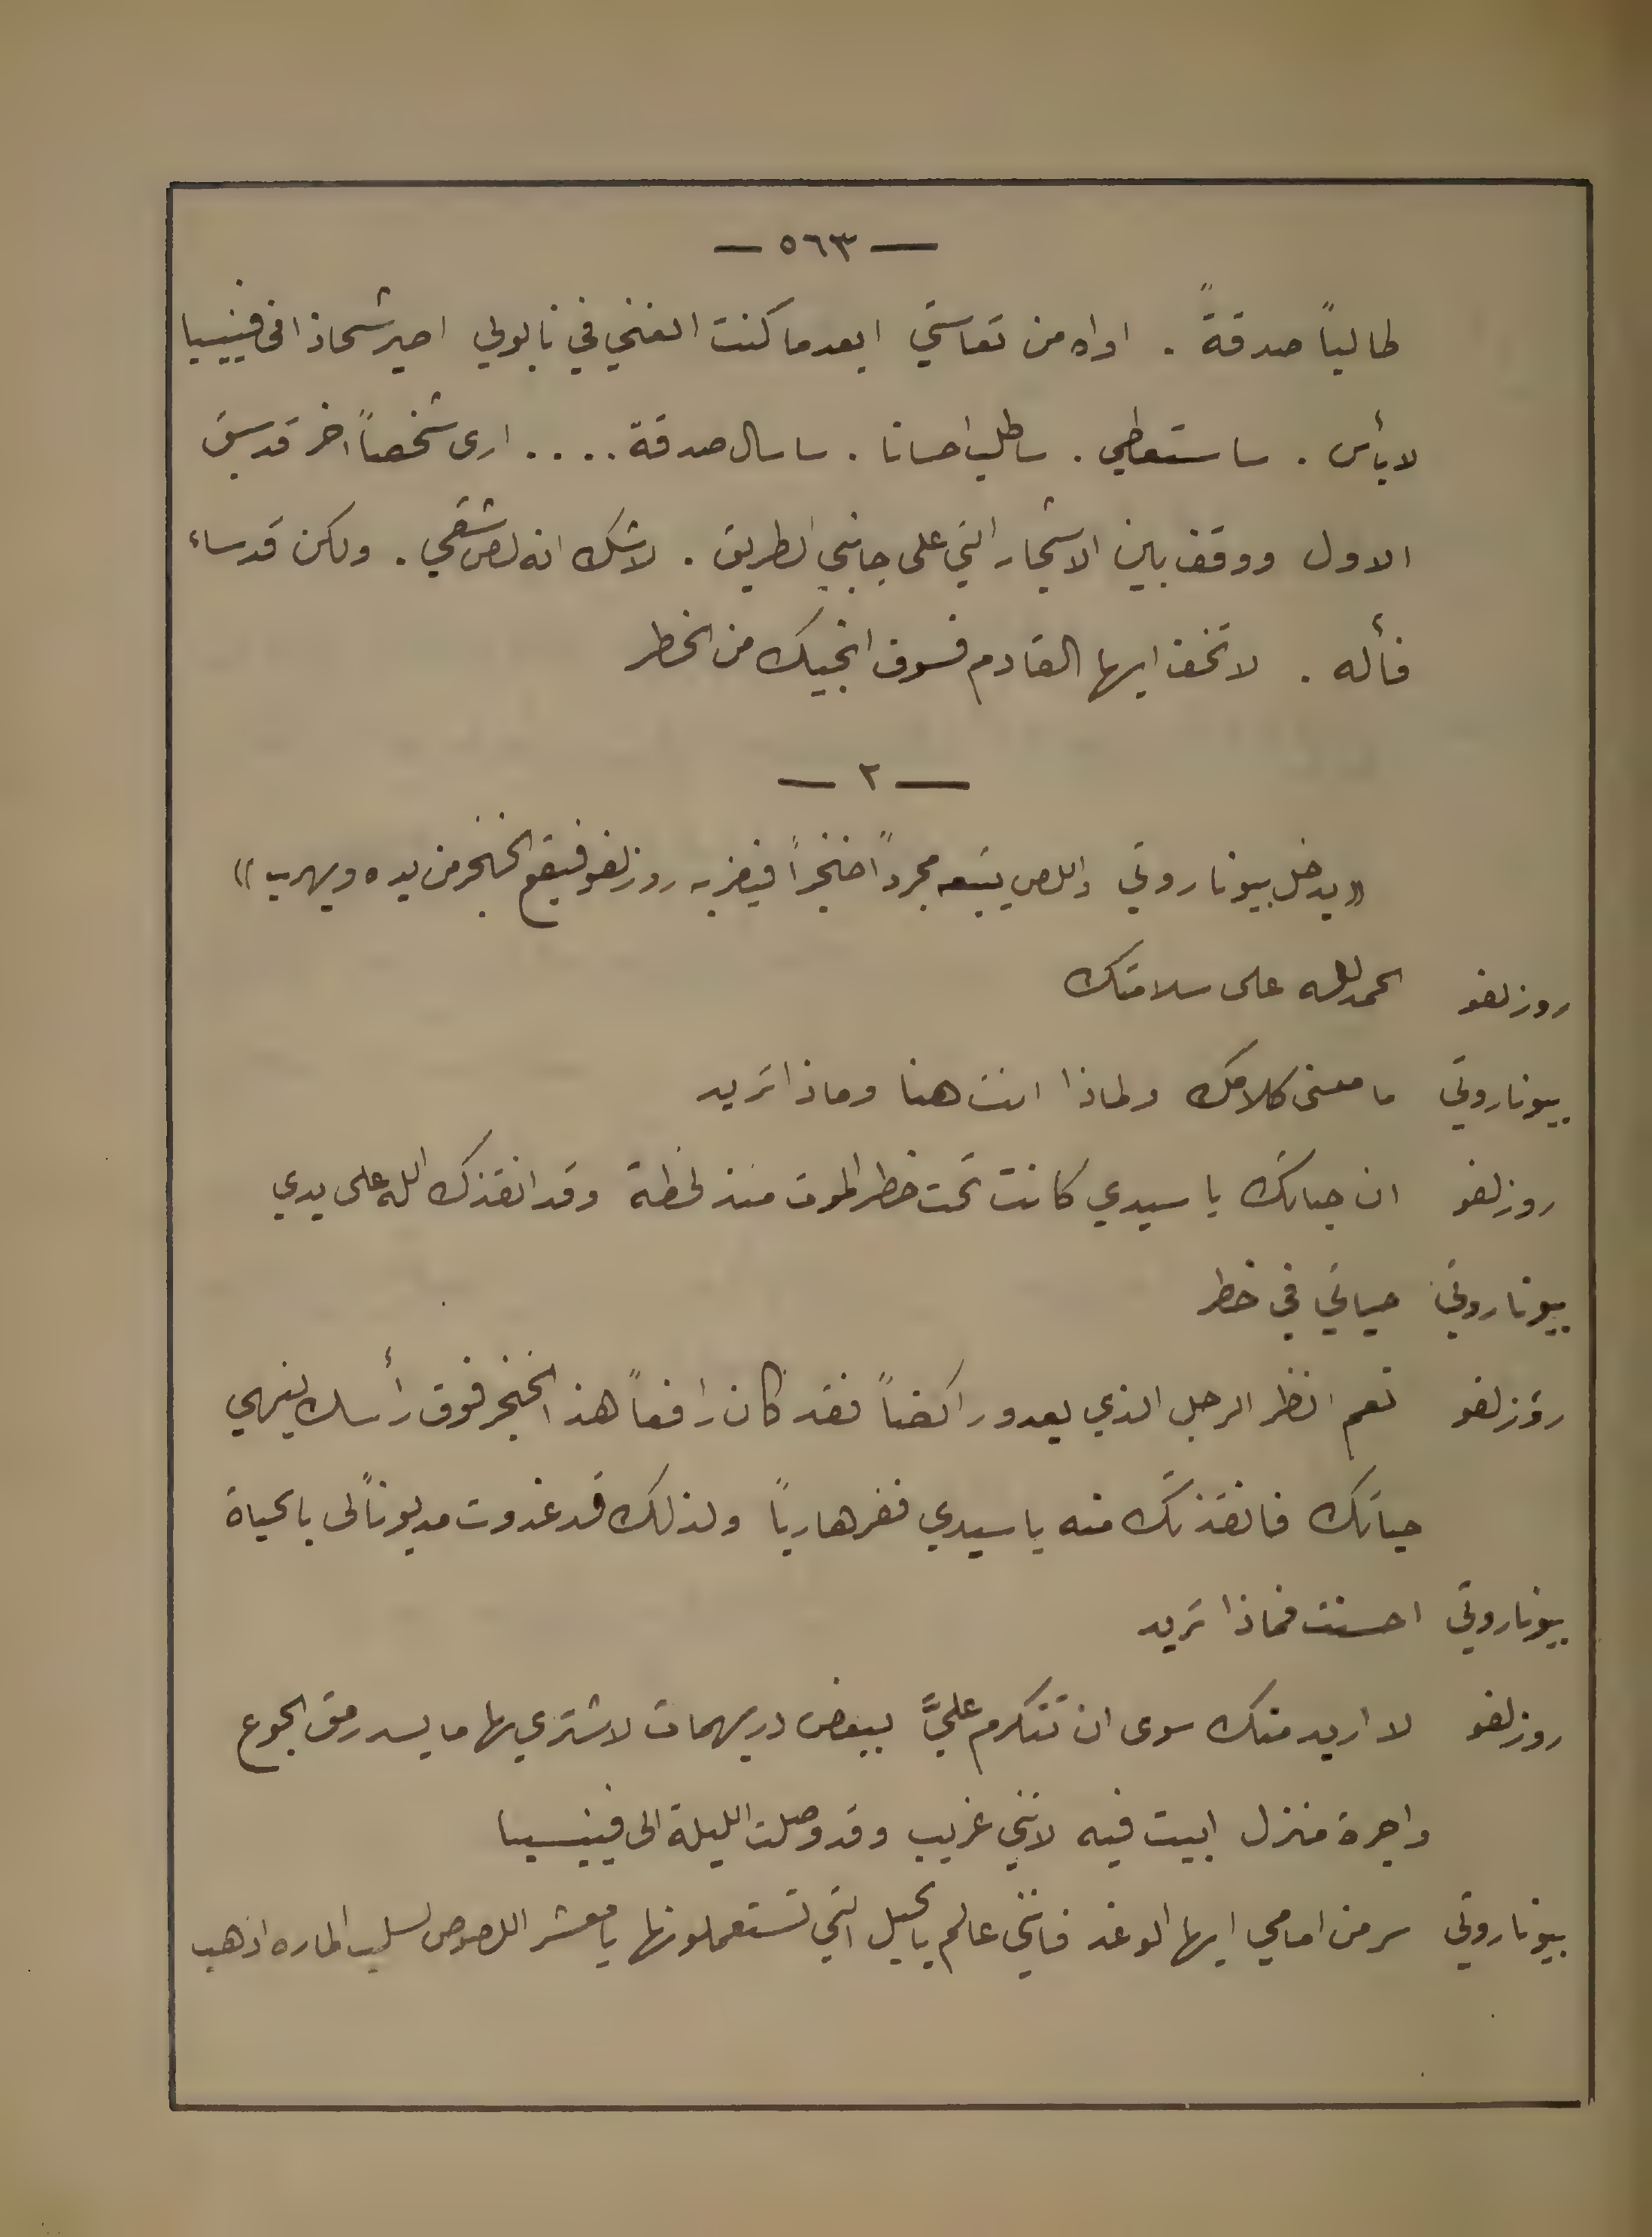 — ٥٦٣ —
طالباً صدقةً . اواه من تعاستي ابعد ما كنت الغني في نابولي اصير شحاذا في فينيسيا
لا بأس . ساستعطي . ساطلب احسانا . ساسال صدقة .... ارى شخصاً اخر قد سبق
الاول ووقف بين الاشجار التي على جانبي الطريق . لا شك انه لص شقي . ولكن قد ساء
فأله . لا تخف ايها القادم فسوف انجيك من الخطر
— ٢ —
« يدخل بيوناروتي واللص يتبعه مجرداً خنجراً فيضربه روزلفو فيقع الخنجر من يده ويهرب »
روزلفو الحمد لله على سلامتك
بيوناروتي ما معنى كلامك ولماذا انت هنا وماذا تريد
روزلفو ان حياتك يا سيدي كانت تحت خطر الموت منذ لحظة وقد انقذك الله على يدي
بيوناروتي حياتي في خطر
روزلفو نعم انظر الرجل الذي يعدو راكضاً فقد كان رافعاً هذا الخنجر فوق رأسك لينهي
حياتك فانقذتك منه يا سيدي ففر هارباً ولذلك قد غدوت مديوناً لي بالحياة
بيوناروتي احسنت فماذا تريد
روزلفو لا اريد منك سوى ان تتكرم عليَّ ببعض دريهمات لاشتري بها ما يسد رمق الجوع
واجرة منزل ابيت فيه لانني غريب وقد وصلت الليلة الى فينيسيا
بيوناروتي سر من امامي ايها الوغد فانني عالم بالحيل التي تستعملونها يا معشر اللصوص لسلب الماره اذهب